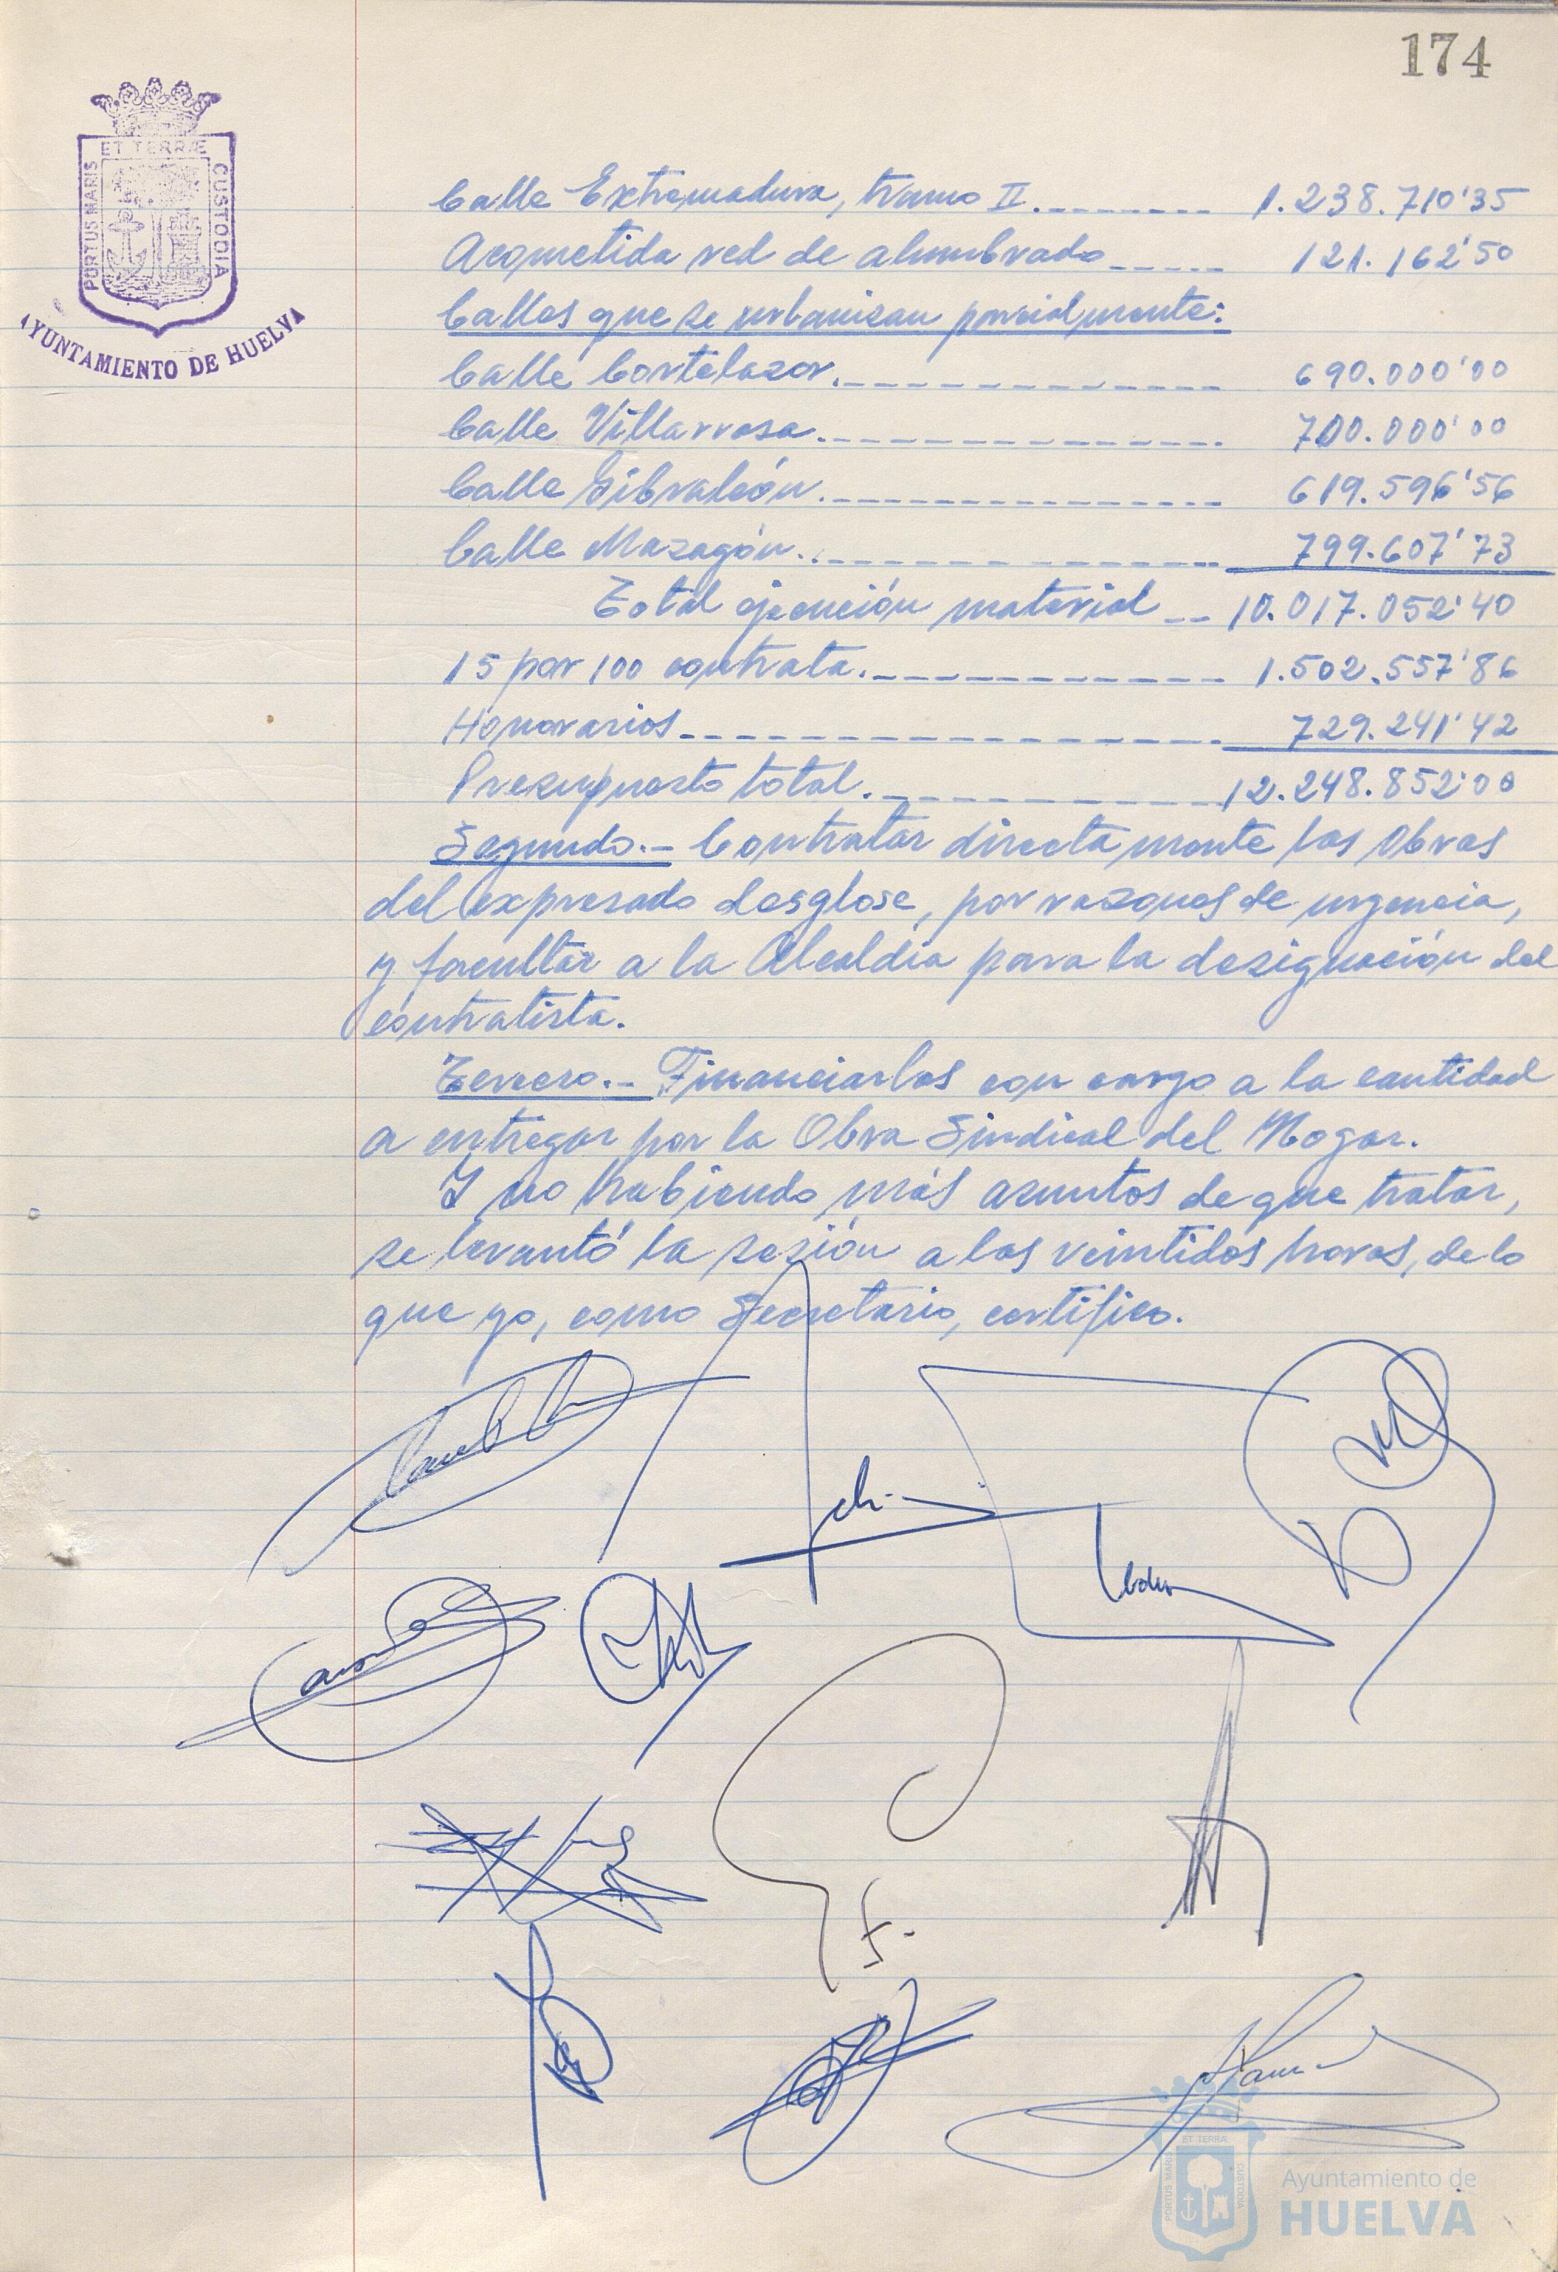 174
ET TERRÆ
PORTUS MARIS
CUSTODIA
AYUNTAMIENTO DE HUELVA
Calle Extremadura, tramo II.-------- 1.238.710'35
Acometida red de alumbrado----- 121.162'50
Calles que se urbanizan parcialmente:
Calle Cortelazor.------------- 690.000'00
Calle Villarrasa.------------- 700.000'00
Calle Gibraleón.------------- 619.596'56
Calle Mazagón.------------- 799.607'73
Total ejecución material -- 10.017.052'40
15 por 100 contrata.------------ 1.502.557'86
Honorarios.----------------- 729.241'42
Presupuesto total.-----------12.248.852'00
Segundo.- Contratar directamente las obras
del expresado desglose, por razones de urgencia,
y facultar a la Alcaldía para la designación del
contratista.
Tercero.- Financiarlas con cargo a la cantidad
a entregar por la Obra Sindical del Hogar.
Y no habiendo más asuntos de que tratar,
se levantó la sesión a las veintidós horas, de lo
que yo, como Secretario, certifico.
ET TERRÆ
PORTUS MARIS
CUSTODIA
Ayuntamiento de
HUELVA